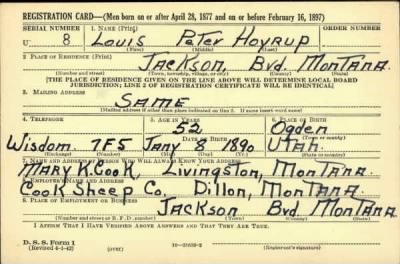 REGISTRATION CARD—(Men born on or after April 28, 1877 and on or before February 16, 1897)
SERIAL NUMBER 1. NAME (Print) ORDER NUMBER
U 8 Louis Peter Hoyrup
(First) (Middle) (Last)
2. PLACE OF RESIDENCE (Print)
Jackson, Bvd. Montana.
(Number and street) (Town, township, village, or city) (County) (State)
[THE PLACE OF RESIDENCE GIVEN ON THE LINE ABOVE WILL DETERMINE LOCAL BOARD
JURISDICTION; LINE 2 OF REGISTRATION CERTIFICATE WILL BE IDENTICAL]
3. MAILING ADDRESS
SAME
[Mailing address if other than place indicated on line 2. If same insert word same]
4. TELEPHONE 5. AGE IN YEARS 6. PLACE OF BIRTH
52 Ogden
DATE OF BIRTH (Town or county)
Wisdom. 7F5 Jany 8 1890 Utah.
(Exchange) (Number) (Mo.) (Day) (Yr.) (State or country)
7. NAME AND ADDRESS OF PERSON WHO WILL ALWAYS KNOW YOUR ADDRESS
Mary K. Cook, Livingston, Montana.
8. EMPLOYER'S NAME AND ADDRESS
Cook Sheep Co. Dillon, Montana.
9. PLACE OF EMPLOYMENT OR BUSINESS
Jackson Bvd Montana
(Number and street or R. F. D. number) (Town) (County) (State)
I AFFIRM THAT I HAVE VERIFIED ABOVE ANSWERS AND THAT THEY ARE TRUE.
D. S. S. Form 1
(Revised 4-1-42) (over) (Registrant's signature)